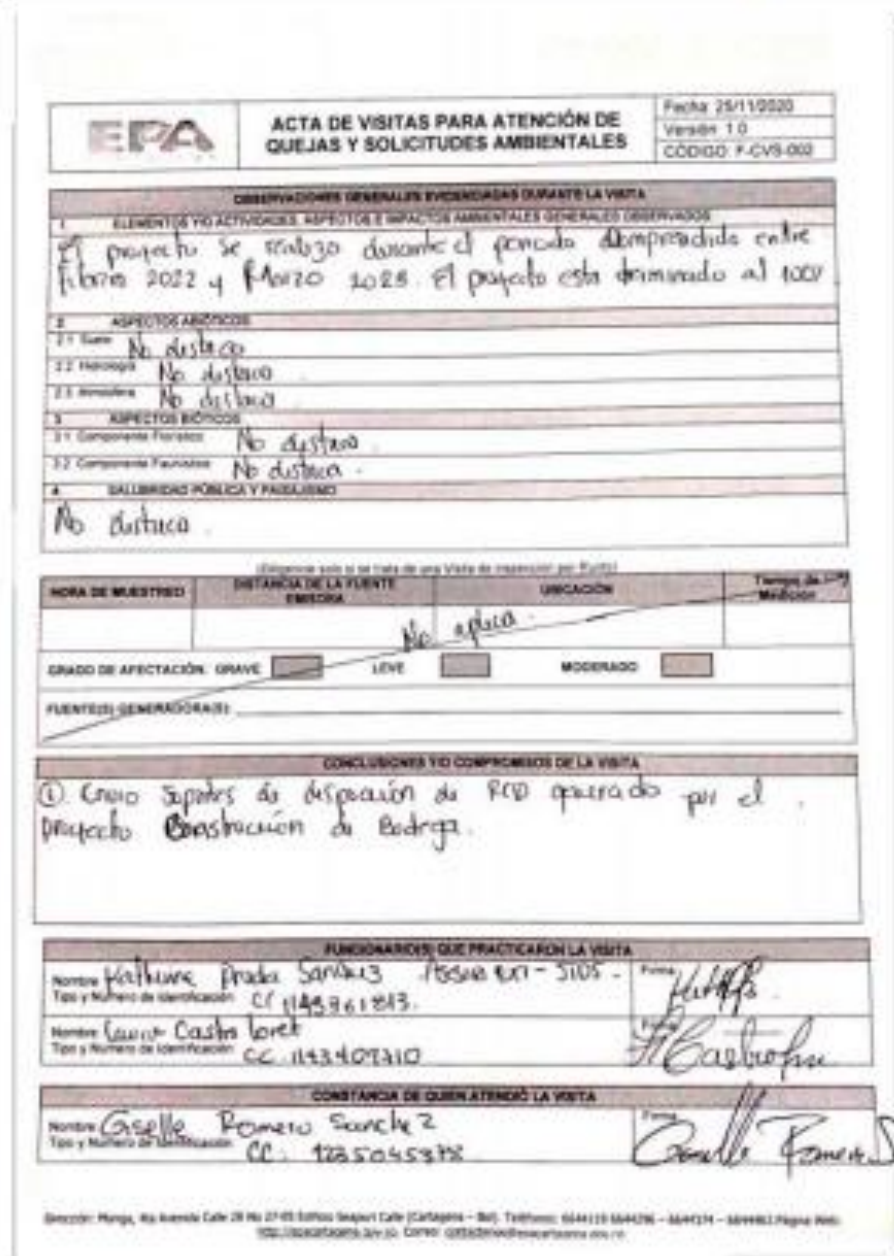 EPA
ACTA DE VISITAS PARA ATENCIÓN DE
QUEJAS Y SOLICITUDES AMBIENTALES
Fecha: 25/11/2020
Versión: 1.0
CÓDIGO: F-CVS-002
OBSERVACIONES GENERALES EVIDENCIADAS DURANTE LA VISITA
1 ELEMENTOS Y/O ACTIVIDADES, ASPECTOS E IMPACTOS AMBIENTALES GENERALES OBSERVADOS
El proyecto se realizo durante el periodo comprendido entre
febrero 2022 y Marzo 2023. El proyecto esta terminado al 100%
2 ASPECTOS ABIÓTICOS
2.1 Suelo No destaca
2.2 Hidrología No destaca
2.3 Atmósfera No destaca
3 ASPECTOS BIÓTICOS
3.1 Componente Florístico No destaca.
3.2 Componente Faunístico No destaca.
4 SALUBRIDAD PÚBLICA Y PAISAJISMO
No destaca.
(Diligencie solo si se trata de una Visita de Inspección por Ruido)
HORA DE MUESTREO
DISTANCIA DE LA FUENTE
EMISORA
UBICACIÓN
Tiempo de
Medición
No aplica.
GRADO DE AFECTACIÓN: GRAVE LEVE MODERADO
FUENTE(S) GENERADORA(S):
CONCLUSIONES Y/O COMPROMISOS DE LA VISITA
① Envio Soportes de disposición de RCD generado por el
proyecto Construcción de Bodega.
FUNCIONARIO(S) QUE PRACTICARON LA VISITA
Nombre Katherine Prada Sanchez
Firma
Tipo y Número de Identificación CC
Nombre Castro Loret
Firma
Tipo y Número de Identificación CC. 1143409710
CONSTANCIA DE QUIEN ATENDIÓ LA VISITA
Nombre Giselle Romero Sanchez
Firma
Giselle Romero S
Tipo y Número de Identificación CC.
Dirección: Manga, 4ta Avenida Calle 28 No 27-05 Edificio Seaport Cale (Cartagena – Bol). Teléfonos: 6644119 6644296 – 6644374 – Página Web: